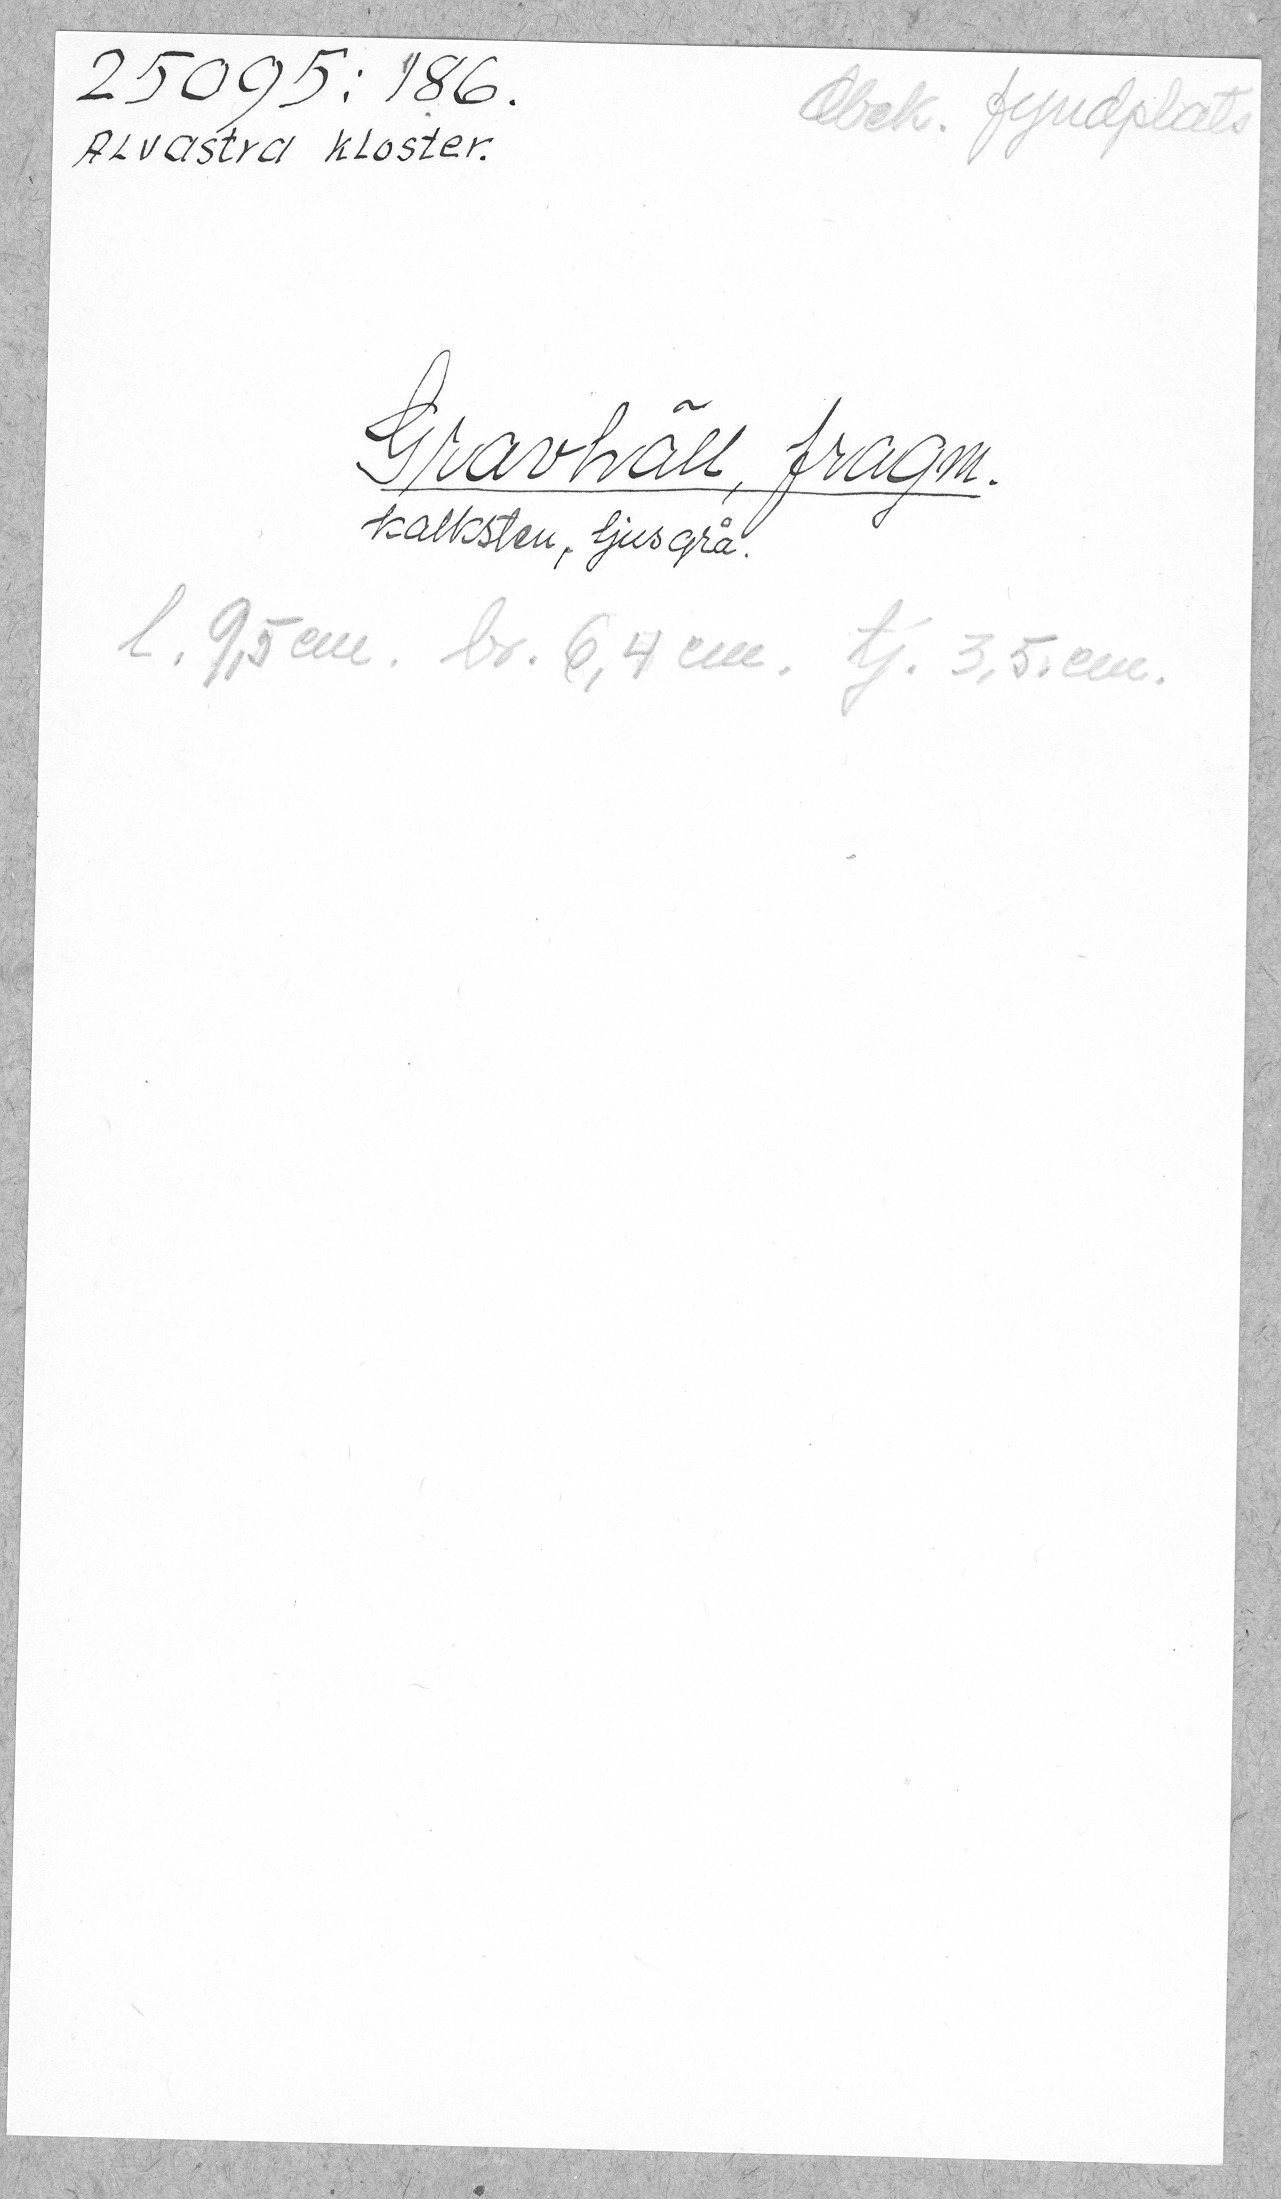 25095: 186.
Obek. fyndplats
Alvastra kloster.
Gravhäll, fragm.
kalksten, ljusgrå.
l. 9,5 cm. br. 6,4 cm. tj. 3,5 cm.